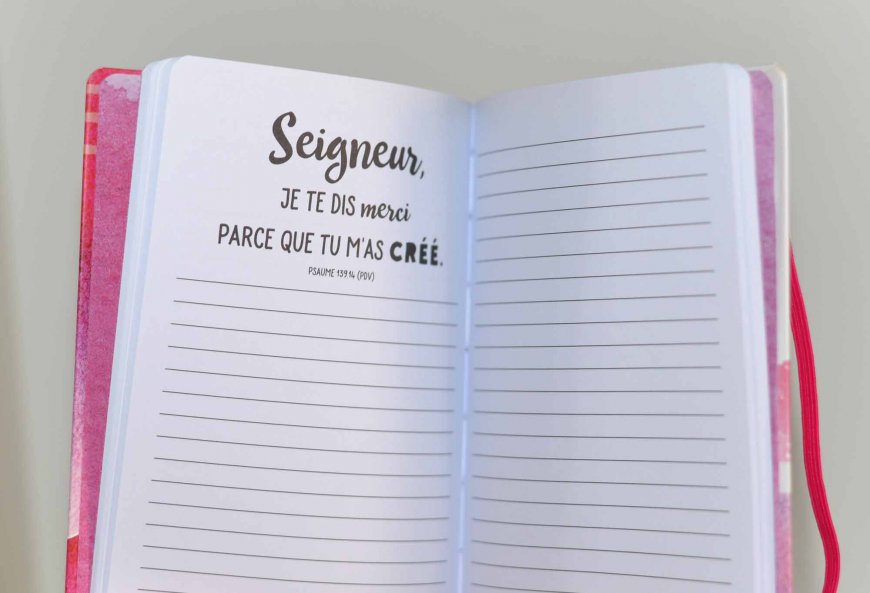 Seigneur,
JE TE DIS merci
PARCE QUE TU M'AS CRÉÉ.
PSAUME 139.14 (PDV)